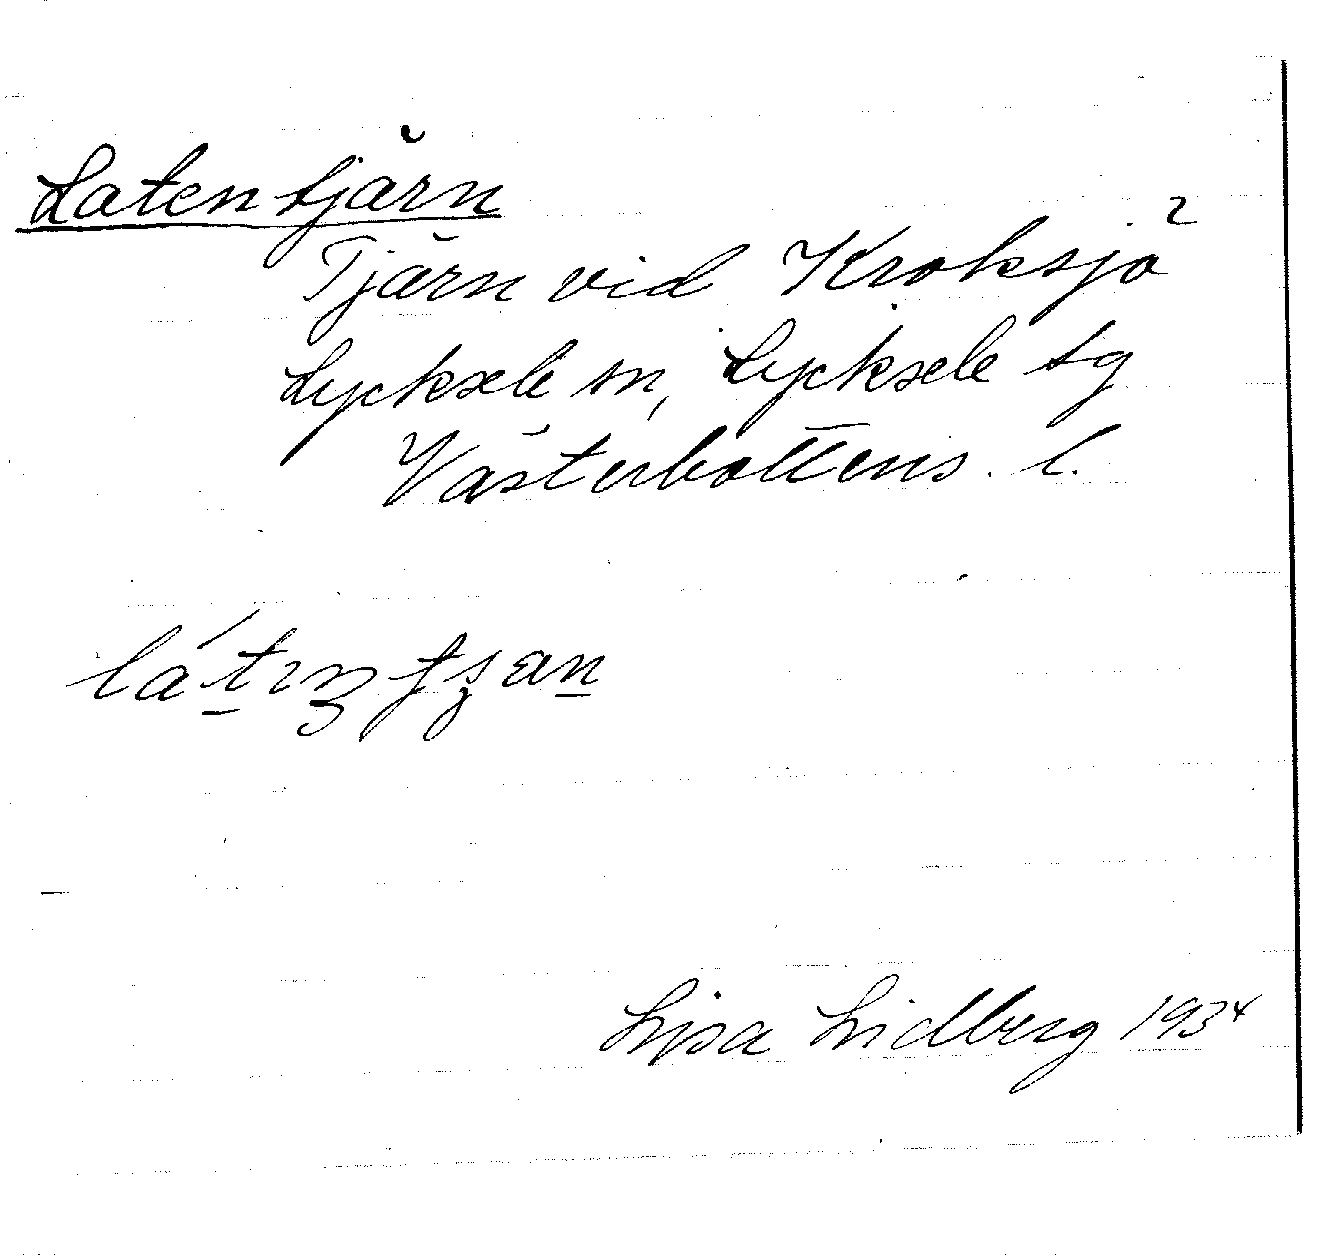 Latentjärn
Tjärn vid Kroksjö
Lycksele sn, Lycksele tg
Västerbottens l.
Lisa Lidberg 1934